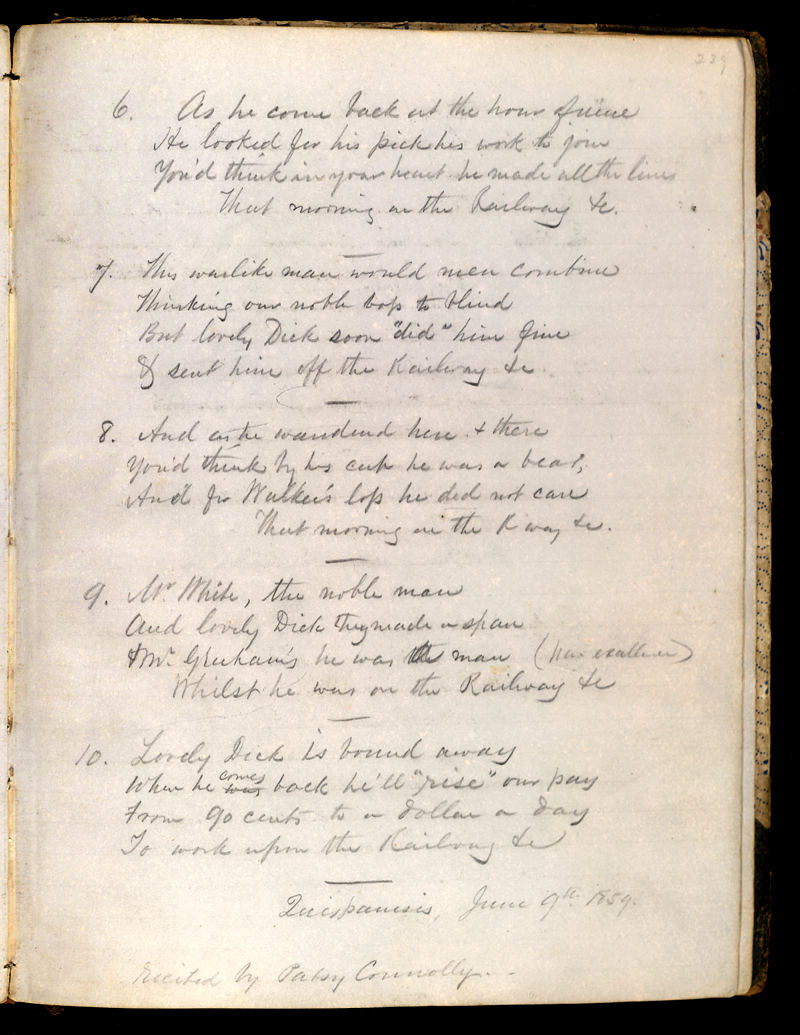 239
6. As he come back at the hour of nine
He looked for his pick his work to join
You'd think in your heart he made all the lines
That morning on the Railway &c.
7. This warlike man would men combine
Thinking our noble boss to blind
But lovely Dick soon "did" him fine
& sent him off the Railway &c.
8. And as he wandered here & there
You'd think by his cap he was a bear,
And for Walker's loss he did not care
That morning on the R way &c.
9. Mr. White, the noble man
And lovely Dick they made a span
& Mr. Graham's he was the man (par excellence)
Whilst he was on the Railway &c
10. Lovely Dick is bound away
comes
When he was back he'll "rise" our pay
From 90 cents to a dollar a day
To work upon the Railway &c
Quispamsis, June 9th. 1859.
Recited by Patsy Connolly.